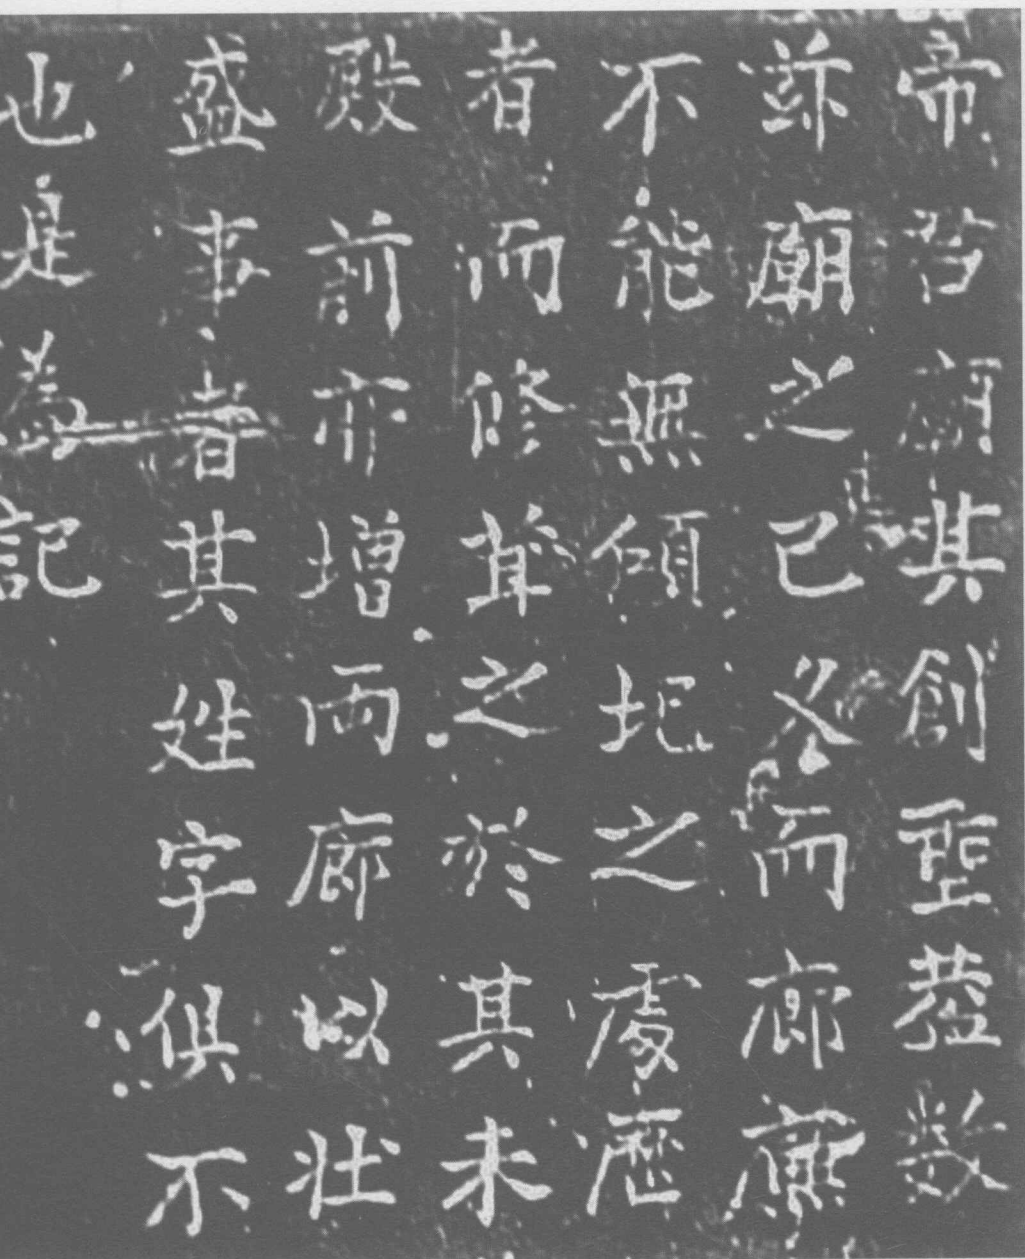 帝其創聖数
廟之已久而廊廡
不能無傾圮之處歷
者而修葺之於其未
殿前亦增两廊以壯
盛事者其姓字俱不
也是為記